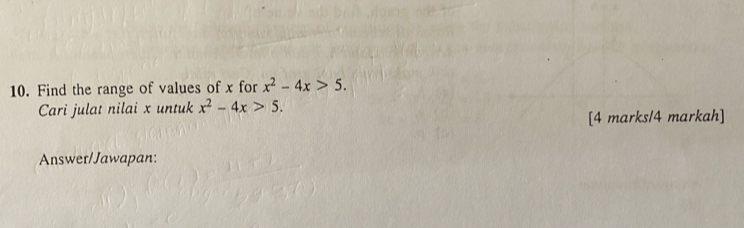 10. Find the range of values of x for x² – 4x > 5.
Cari julat nilai x untuk x² – 4x > 5.
[4 marks/4 markah]
Answer/Jawapan: